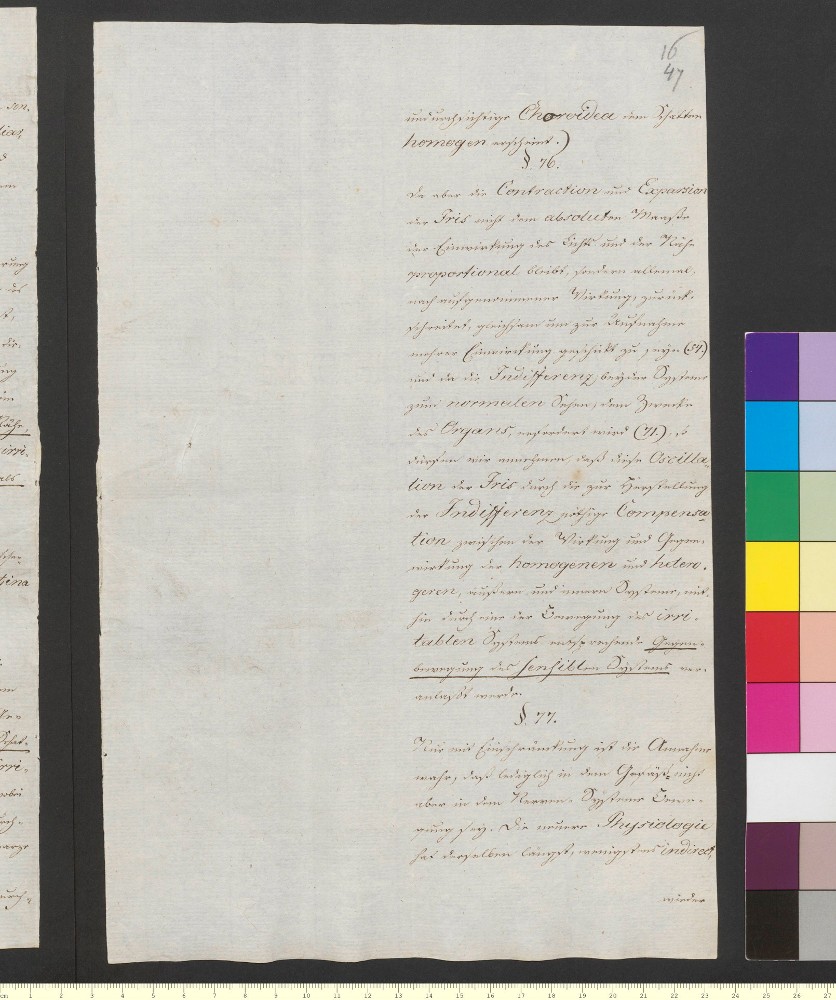 16
47
undurchsichtige Choroidea dem Schatten
homogen erscheint.)
§. 76.
Da aber die Contraction und Expansion
der Iris nicht dem absoluten Maaße
der Einwirkung des Lichts und der Nähe
proportional bleibt, sondern allemal,
nach aufgenommener Wirkung, zurück-
schreitet, gleichsam um zur Aufnahme
mehrer Einwirkung geschikt zu seyn (57.)
und da die Indifferenz beyder Systeme
zum normalen Sehen, dem Zwecke
des Organs, erfordert wird (71.), so
dürfen wir annehmen, daß diese Oscilla-
tion der Iris durch die zur Herstellung
der Indifferenz nöthige Compensa-
tion zwischen der Wirkung und Gegen-
wirkung der homogenen und hetero-
genen, äußern und innern Systeme, mit-
hin durch eine der Bewegung des irri-
tablen Systems entsprechende Gegen-
bewegung des sensiblen Systems ver-
anlaßt werde.
§. 77.
Nur mit Einschränkung ist die Annahme
wahr, daß lediglich in dem Gefäß- nicht
aber in dem Nerven-Systeme Bewe-
gung sey. Die neuere Physiologie
hat derselben längst, wenigstens indirect,
wieder
sen-
des
die
Nähe,
irri-
als
tina
Schat-
irri-
durch-